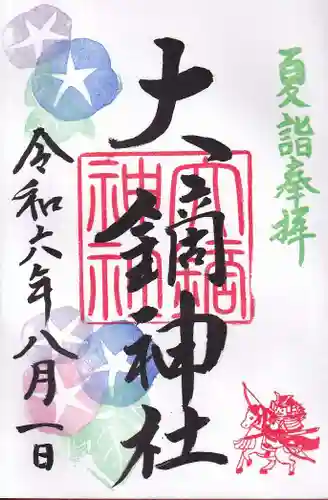 夏詣奉拝
大鏑神社
大鏑神社
令和六年八月一日